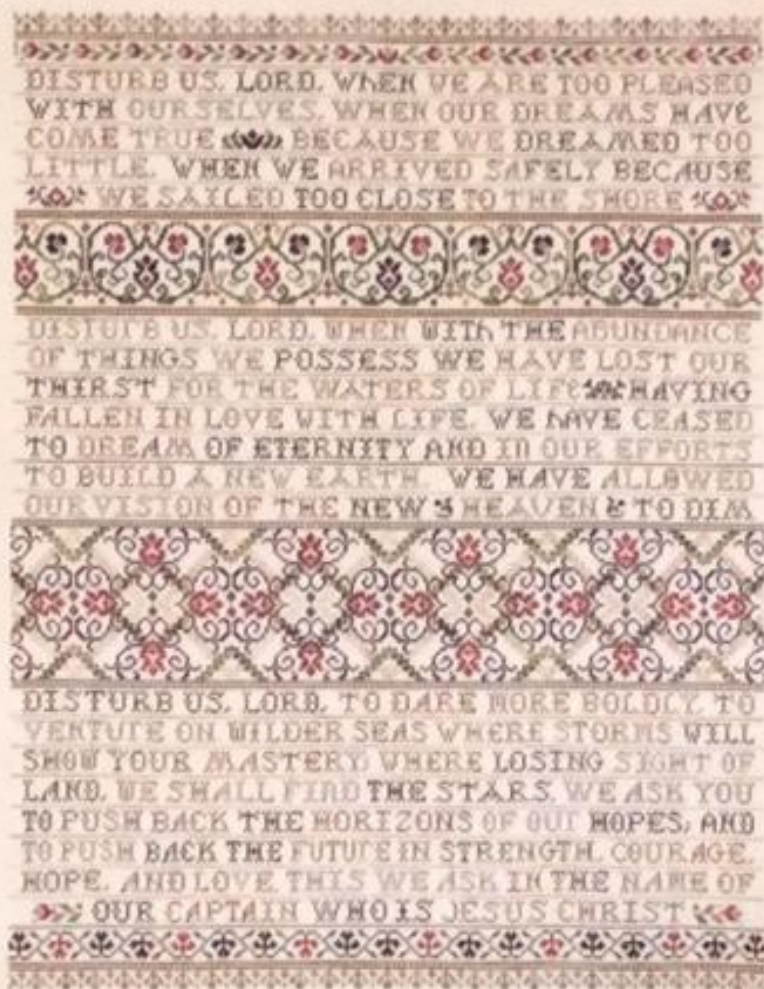 DISTURB US, LORD, WhEN WE ARE TOO PLEASED
WITH OURSELVES, WHEN OUR DREAMS HAVe
COME TRUE BECAUSE WE DREAMED TOO
LITTLE, WHEN WE ARRIVED SAFELY BECAUSE
WE SAILED TOO CLOSE TO THE SHORE
DISTURB US, LORD, WHEN WITh THE ABUNDANCE
OF THINGS WE POSSESS WE HAVE LOST OUR
THIRST FOR THE WATERS OF LIFe HAVING
FALLEN IN LOVE WITH LIFE, WE hAVE CEASED
TO DREAM OF ETERNITY AND IN OUR EFFORTS
TO BUILD A NEW EARTH, WE HAVE ALLOWED
OUR VISION OF THE NEW HEAVEN TO DIM
DISTURB US, LORD, TO DARE MORE BOLDLY, TO
VENTURE ON WILDER SEAS WHERE STORMS WILL
SHOW YOUR MASTERY; WHERE LOSING SIGHT OF
LAND, WE SHALL FIND THE STARS. WE ASK YOU
TO PUSH BACK THE HORIZONS OF OUR HOPES; AND
TO PUSH BACK THE FUTURE IN STRENGTH, COURAGE,
HOPE, AND LOVE. THIS WE ASK IN THE NAME OF
OUR CAPTAIN WHO IS JESUS CHRIST